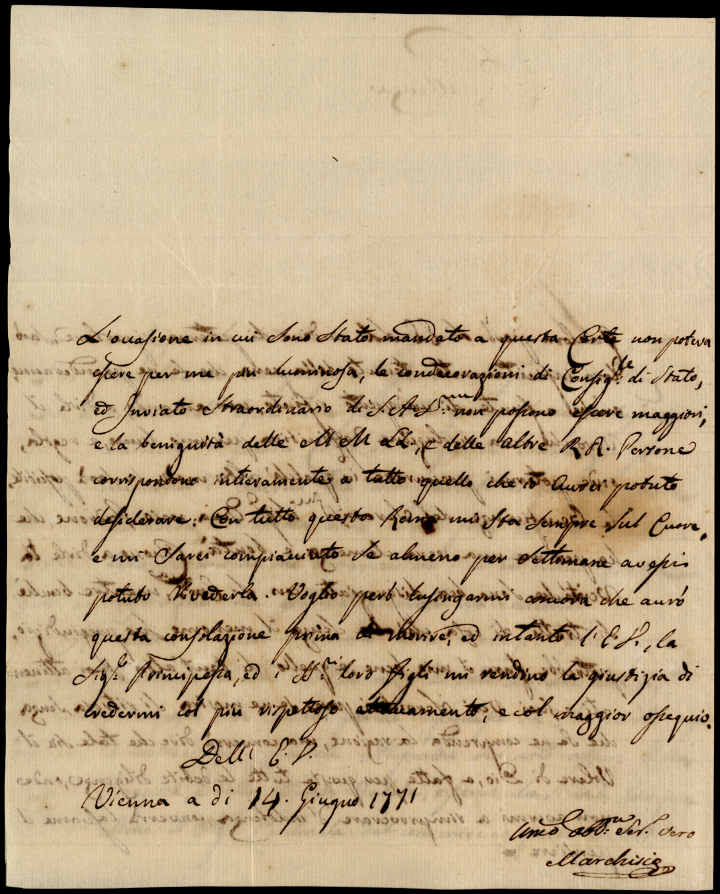 L'occasione in cui sono stato mandato a questa Corte non poteva
essere per me più luminosa, le condecorazioni di Consig.re di Stato,
ed Inviato Straordinario di S. A. S.ma non possono essere maggiori,
e la benignità delle M M. LL., e delle altre R. A. Persone
corrispondono intieramente a tutto quello che io aurei potuto
desiderare: Con tutto questo Roma mi sta sempre sul Cuore,
e mi sarei compiaciuto se almeno per settimane avessi
potuto rivederla. Voglio però lusingarmi ancora che aurò
questa consolazione prima di morire, ed intanto l'E. V., la
Sig.ra Principessa, ed i loro figli mi rendino la giustizia di
credermi col più rispettoso attaccamento, e col maggior ossequio.
Dell' E. V.
Vienna a di 14. Giugno 1771
Serv. vero
Marchisio